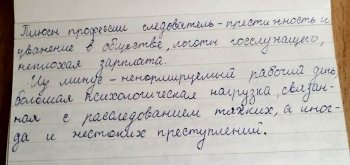 Плюсы профессии следователь - престижность и
уважение в обществе, льготы госслужащего,
неплохая зарплата.
Из минус - ненормируемый рабочий день
большая психологическая нагрузка, связан-
ная с расследованием тяжких, а иног-
да и жестоких преступлений.